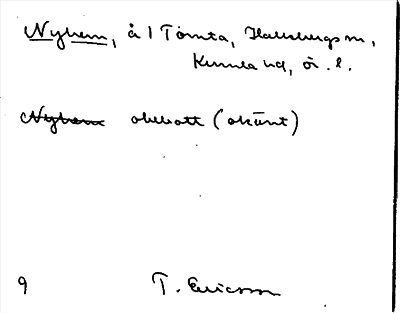 Nyhem, å 1 Tomta, Hallsbergs m,
Kumla hd, ör. l.
Nyhem obebott (okänt)
9 T. Ericsson